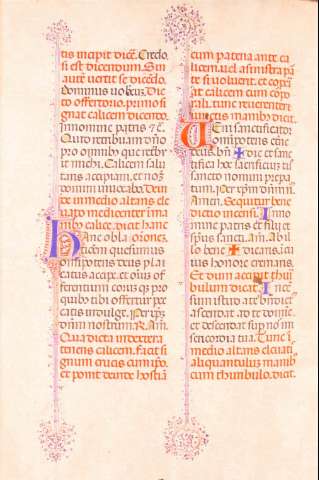 tis incipit dicēt. Credo.
si est dicendum. Sin
autē vertit se dicēdo.
Dominus uobcuʒ. Dic
to offertorio. primo si
gnat calicem dicendo.
In nomine patris ⁊ c̄.
Quid retribuam dn̄o
pro omnibus que retribu
it michi. Calicem salu
taris accipiam. et nomē
domini inuocabo. Dein
de in medio altaris ele
uato mediocriter in ma
nibus calice. dicit hanc
Hanc oblationem.
ficiem quesumus
omnipotens deus pla
catus accipe. et om̄ius of
ferentium eorum uel quis pro
quibus tibi offertur pec
cata indulge. Per xp̄m
dn̄m nostrum. R. Am.
Qua dicta
tenens calicem. facit si
gnum crucis cum ip̄o.
et ponit deinde hostiā
cum patena ante ca
licem uel a sinistra pa
te si uoluerit. et coperi
at calicem cum corpo
rali. tunc reuerenter
iunctis manibus dicit.
Veni sanctificator
omnipotens etn̄e
deus. bn̄ ✠ dic et sanc
tifica hoc sacrificium tuo
sancto nomini prepara
tum. Per xp̄m dn̄m n̄.
Amen. Sequitur bene
dictio incensi. In no
mine patris et filij et
spiritus sancti. Am. Ab il
lo bene ✠ dicaris. in cu
ius honore cremaris.
Et dum accipit thuri
bulum dicat. Inc̄
sum istud a te bn̄dictū
ascendat ad te domine.
et descendat sup nos mi
sericordia tua. Tunc ī
medio altaris eleuati
aliquantulum manibus
cum thuribulo. dicit.